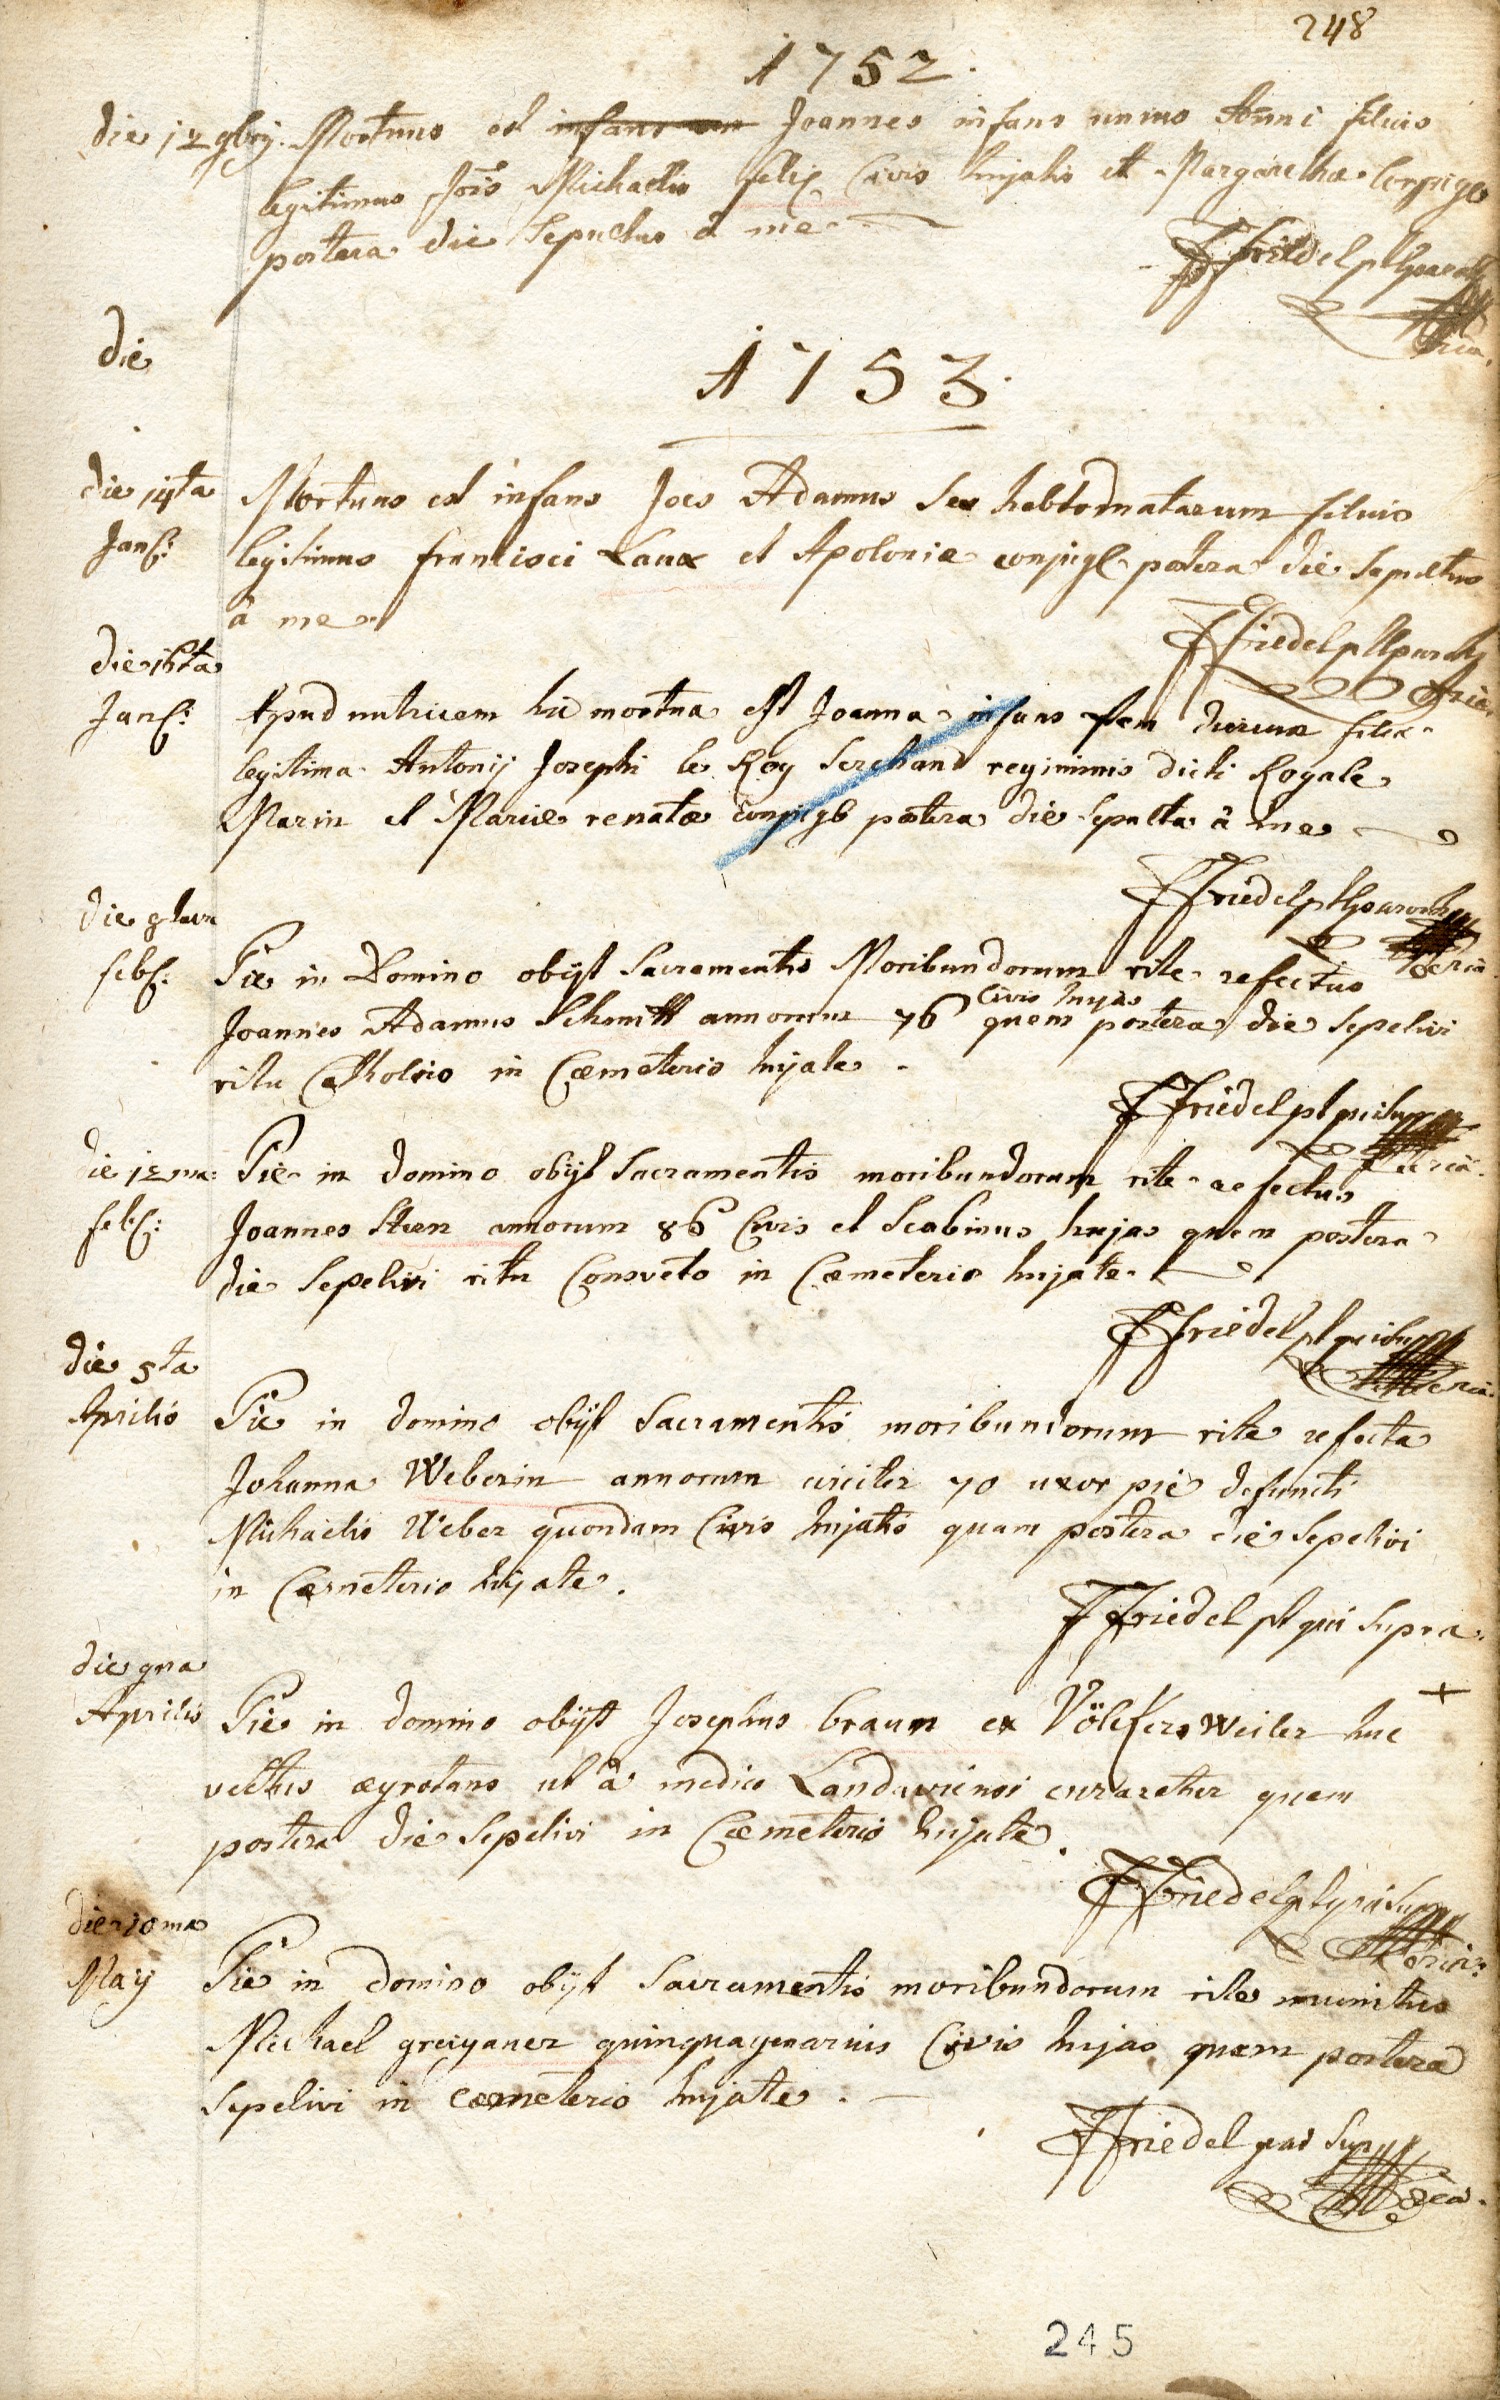 248
A 1752.
die 12 9bris. Mortuus est infans un Joannes infans unius Anni filius
legitimus Jois Michaelis felix Civis hujatis et Margarethæ conjug
postera die Sepultus à me
Friedel pl parochus
die
A 1753.
die 14ta Mortuus est infans Joes Adamus Sex hebdomatarum filius
Jan: legitimus francisci Laux et Apoloniæ conjugl postera die Sepultus
à me
Friedel pl parochus
die 16ta
Jan: Apud nutricem hic mortua est Joanna infans filia
legitima Antonij Josephi le Roy Serchand regiminis dicti Royale
Marin et Mariæ renatæ conjugl postera die Sepulta à me
Friedel pl parochus
die
feb: Pie in Domino obijt Sacramentis Moribundorum rite refectus
Civis hujas
Joannes Adamus Schmitt annorum 76 quem postera die Sepelivi
ritu Catholico in Cæmeterio hujate.
Friedel pl qui supra
die 12ma: Pie in domino obijt Sacramentis moribundorum rite refectus
feb: Joannes annorum 86 Civis et Scabinus hujas quem postera
die Sepelivi ritu Consveto in Cæmeterio hujate.
Friedel pl qui supra
die 5ta
Aprilis Pie in domino obijt Sacramentis moribundorum rite refecta
Johanna Weberin annorum circiter 70 uxor pie defuncti
Michaelis Weber quondam Civis hujatis quam postera die Sepelivi
in Cæmeterio hujate.
Friedel pl qui Supra.
die 9na
Aprilis Pie in domino obijt Josephus braun ex Völckersweiler huc +
vectus ægrotans ut à medico Landaviensi curaretur quem
postera die Sepelivi in Cæmeterio hujate.
Friedel pl qui supra
die 10ma
May Pie in domino obijt Sacramentis moribundorum rite munitus
Michael greiganer quinquagenarius Civis hujas quem postera
Sepelivi in cæmeterio hujate.
Friedel qui Supra
245